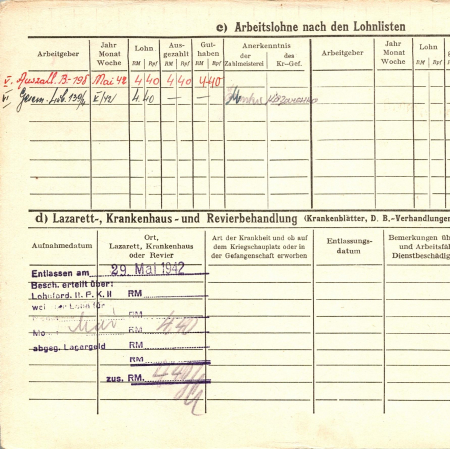 c) Arbeitslohne nach den Lohnlisten
Arbeitgeber Jahr Monat Woche Lohn RM Rpf Aus- gezahlt RM Rpf Gut- haben RM Rpf Anerkenntnis der Zahlmeisterei des Kr.-Gef. Arbeitgeber Jahr Monat Woche Lohn RM Rpf
V. Auszahl. B-198 Mai 42 4 40 4 40 4 40
VI V/42 4.40 — —
d) Lazarett-, Krankenhaus- und Revierbehandlung (Krankenblätter, D. B.-Verhandlungen
Aufnahmedatum Ort, Lazarett, Krankenhaus oder Revier Art der Krankheit und ob auf dem Kriegschauplatz oder in der Gefangenschaft erworben Entlassungs- datum Bemerkungen über und Arbeitsfä Dienstbeschädig
Entlassen am 29. Mai 1942
Besch. erteilt über:
Lohnford. II. P. K. II RM
Lohn für
RM
Mai 4.40
abgeg. Lagergeld RM
RM
zus. RM. 4.40